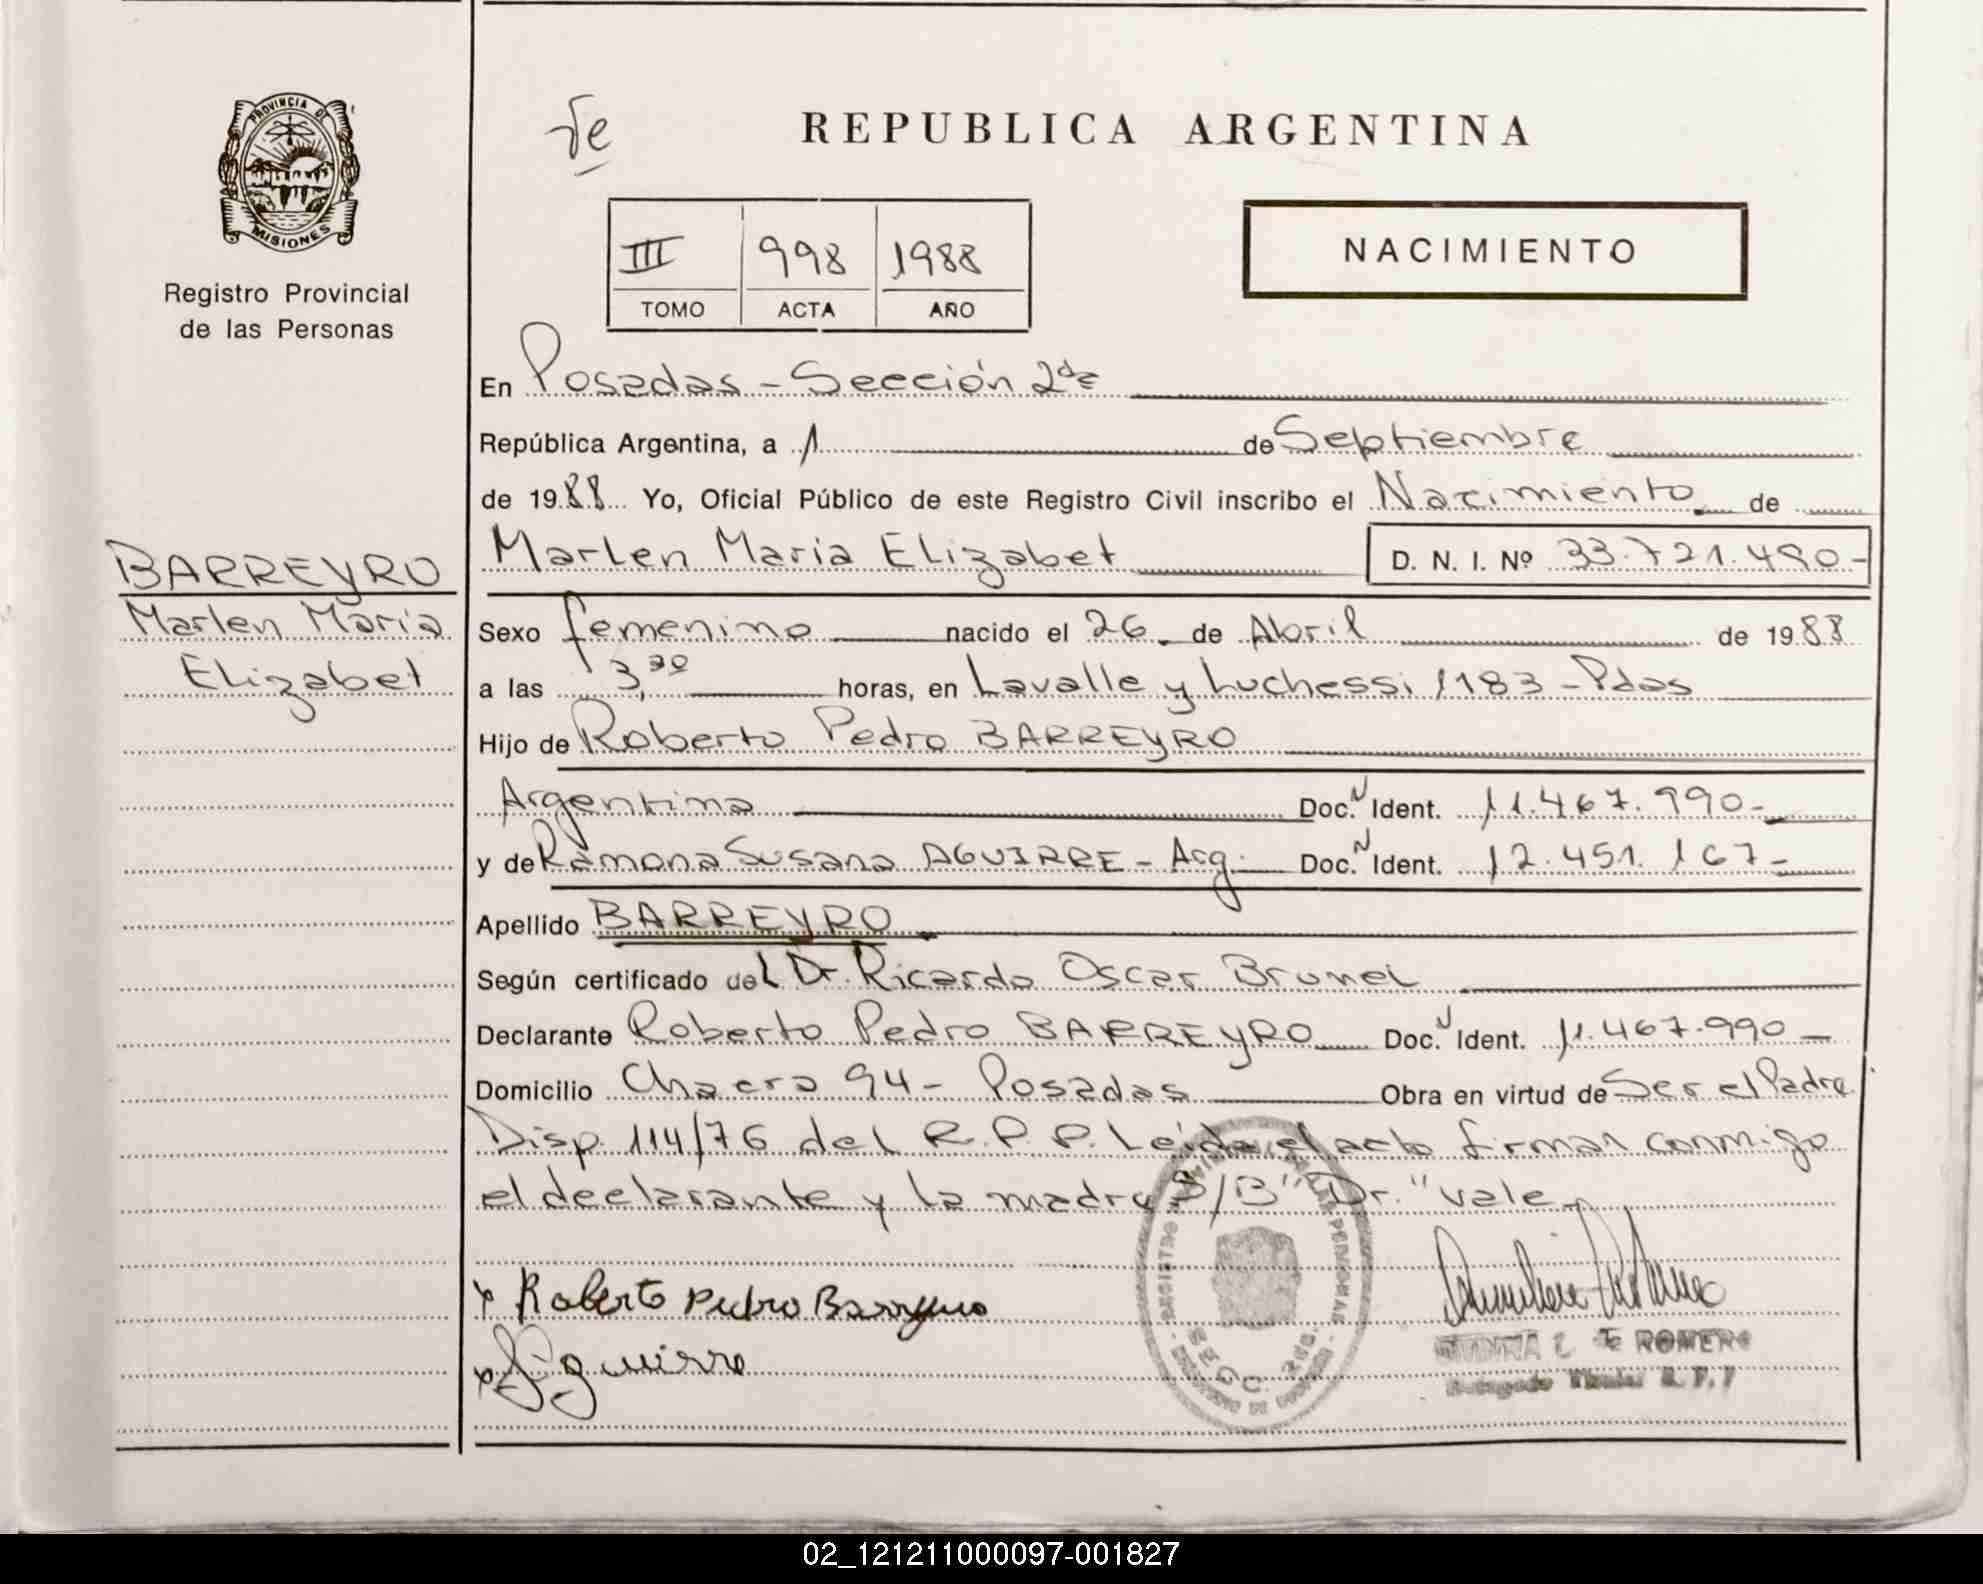 PROVINCIA DE
MISIONES
Registro Provincial
de las Personas
REPUBLICA ARGENTINA
III 998 1988
TOMO ACTA AÑO
NACIMIENTO
En Posadas - Sección 2da
República Argentina, a 1 de Septiembre
de 1988 Yo, Oficial Público de este Registro Civil inscribo el Nacimiento de
BARREYRO
Marlen María
Elizabet
Marlen Maria Elizabet D. N. I. Nº 33.721.490-
Sexo femenino nacido el 26 de Abril de 1988
a las 3,30 horas, en Lavalle y Luchessi 1183 - Pdas
Hijo de Roberto Pedro BARREYRO
Argentina Doc. Ident. 11.467.990-
y de Ramona Susana AGUIRRE - Arg. Doc. Ident. 12.451.167-
Apellido BARREYRO
Según certificado del Dr. Ricardo Oscar Brunel
Declarante Roberto Pedro BARREYRO Doc. Ident. 11.467.990-
Domicilio Chacra 94 - Posadas Obra en virtud de Ser el Padre
Disp. 114/76 del R.P.P. Leída el acto firman conmigo
el declarante y la madre S/B "Dr." vale
x Roberto Pedro Barreyro
x Aguirre
ROMERO
02_121211000097-001827